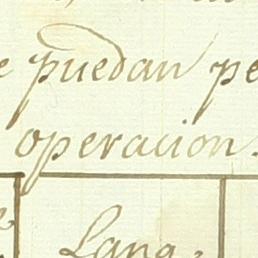 puedan pe
operacion.
Lang,